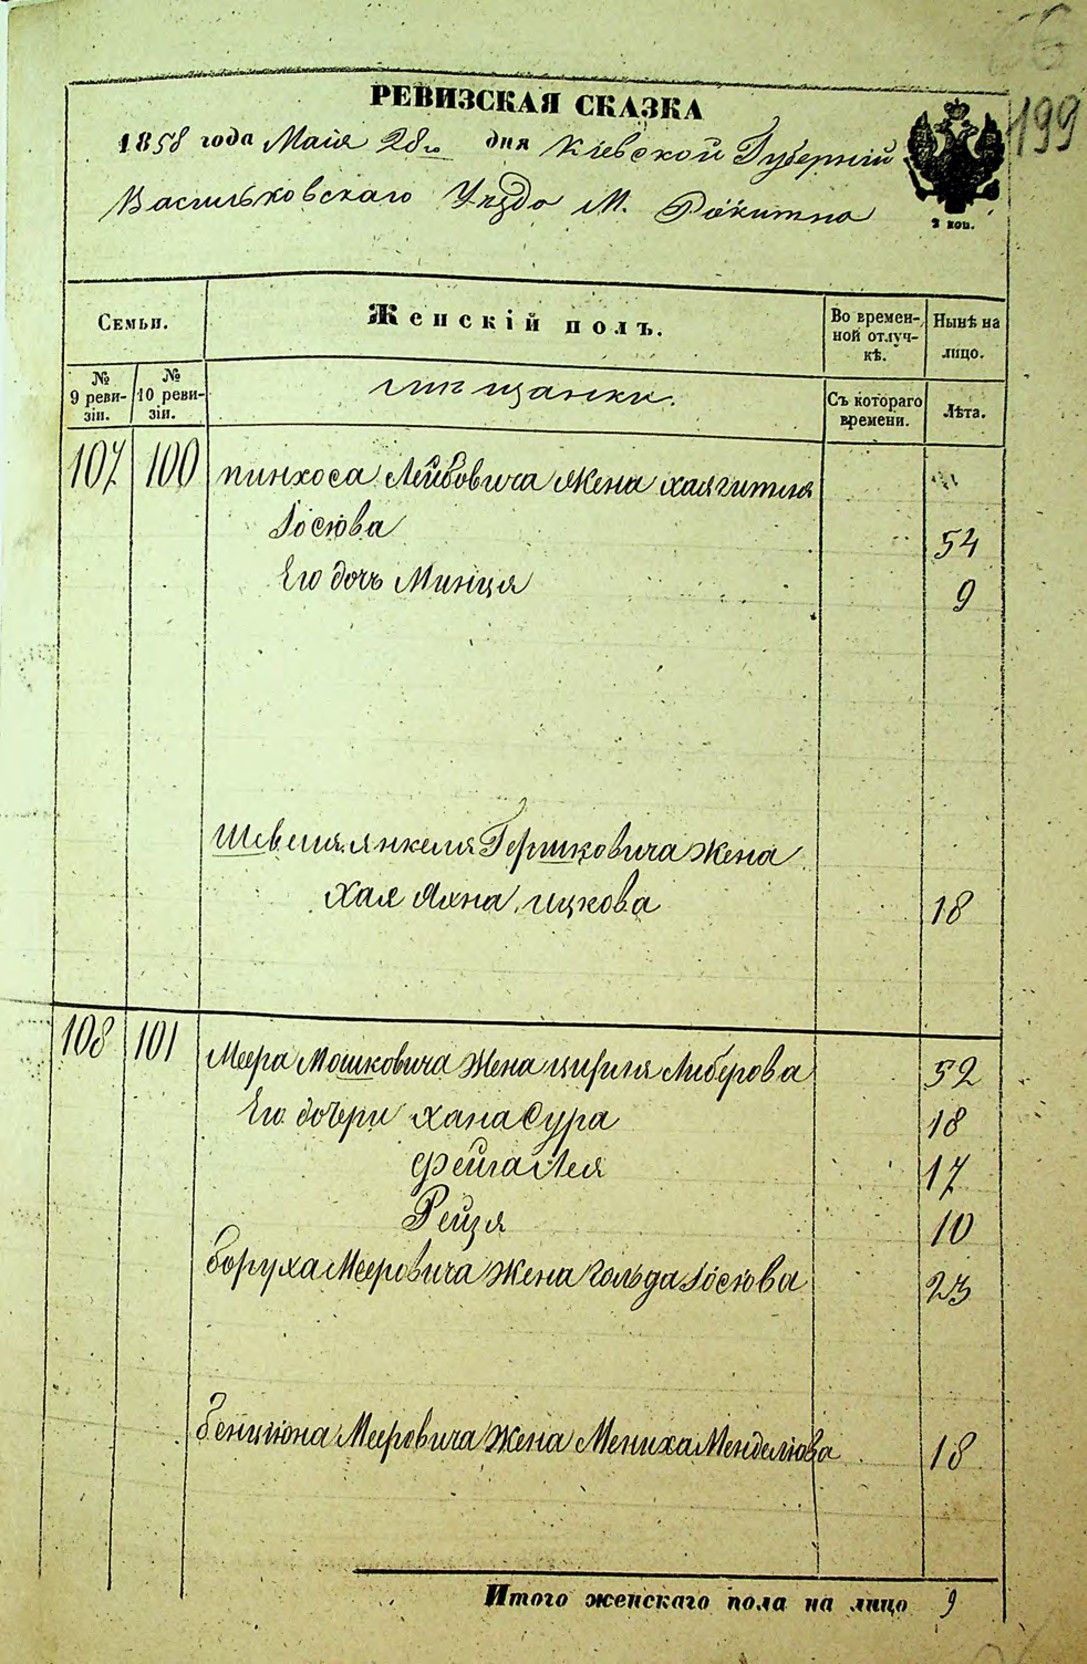 199
РЕВИЗСКАЯ СКАЗКА
1858 года Маія 28го дня Кіевской Губерніи
Васильковскаго Уѣзда М. Рокитно
2 коп.
Семьи.
Женскій полъ.
Во времен-
ной отлуч-
кѣ.
Нынѣ на
лицо.
№
9 реви-
зіи.
№
10 реви-
зіи.
мѣщанки.
Съ котораго
времени.
Лѣта.
107 100 пинхоса Лейбовича жена хаягитля
Іосіова 54
Его дочь Минця 9
Янкеля Гершковича жена
Хая Яхна ицкова 18
108 101 Меера Мошковича жена цирля Либерова 52
Его дочери хана Сура 18
фейга Лея 17
Рейзя 10
боруха Мееровича жена гольда Іосіова 23
бенціона Мееровича жена Мениха Менделіова 18
Итого женскаго пола на лицо 9